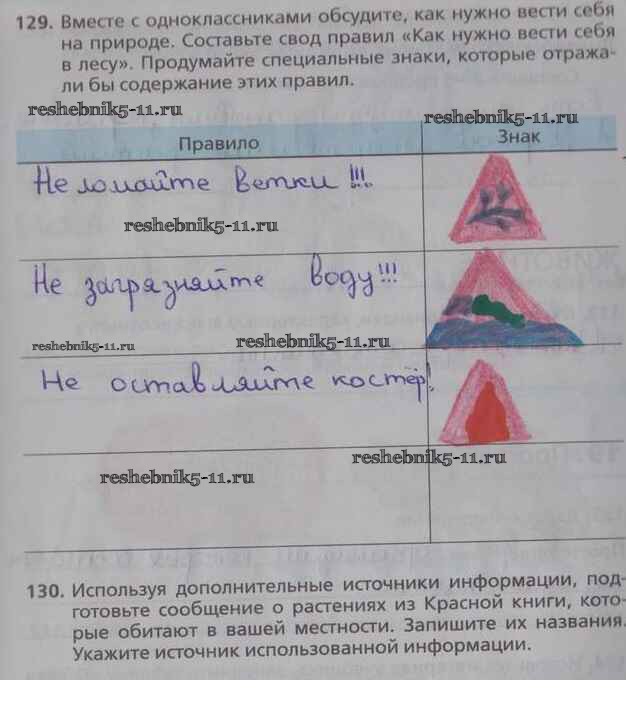 129. Вместе с одноклассниками обсудите, как нужно вести себя
на природе. Составьте свод правил «Как нужно вести себя
в лесу». Продумайте специальные знаки, которые отража-
ли бы содержание этих правил.
reshebnik5-11.ru
reshebnik5-11.ru
Правило
Знак
Не ломайте ветки !!!
reshebnik5-11.ru
Не загрязняйте воду!!!
reshebnik5-11.ru
reshebnik5-11.ru
Не оставляйте костёр!
reshebnik5-11.ru
reshebnik5-11.ru
130. Используя дополнительные источники информации, под-
готовьте сообщение о растениях из Красной книги, кото-
рые обитают в вашей местности. Запишите их названия.
Укажите источник использованной информации.